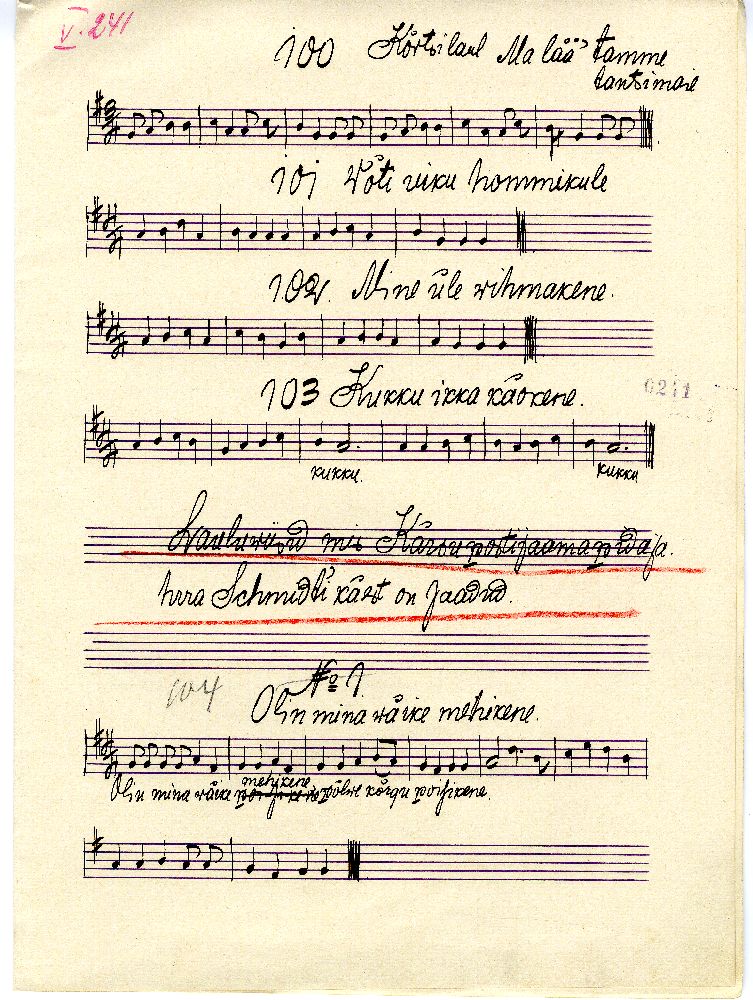 V. 241
100 Kõrtsilaul Ma lää' tamme
tantsimaie
101 Wõti viku hommikule
102. Mine üle wihmakene.
103 Kukku ikka käokene.
0211
kukku. kukku
Lauluwiisid mis Kärsu postijaamapidaja.
herra Schmidti käest on saadud.
104
No 1.
Olin mina wäike mehikene.
mehikene
Olin mina wäike põlwe kõrgu poisikene.